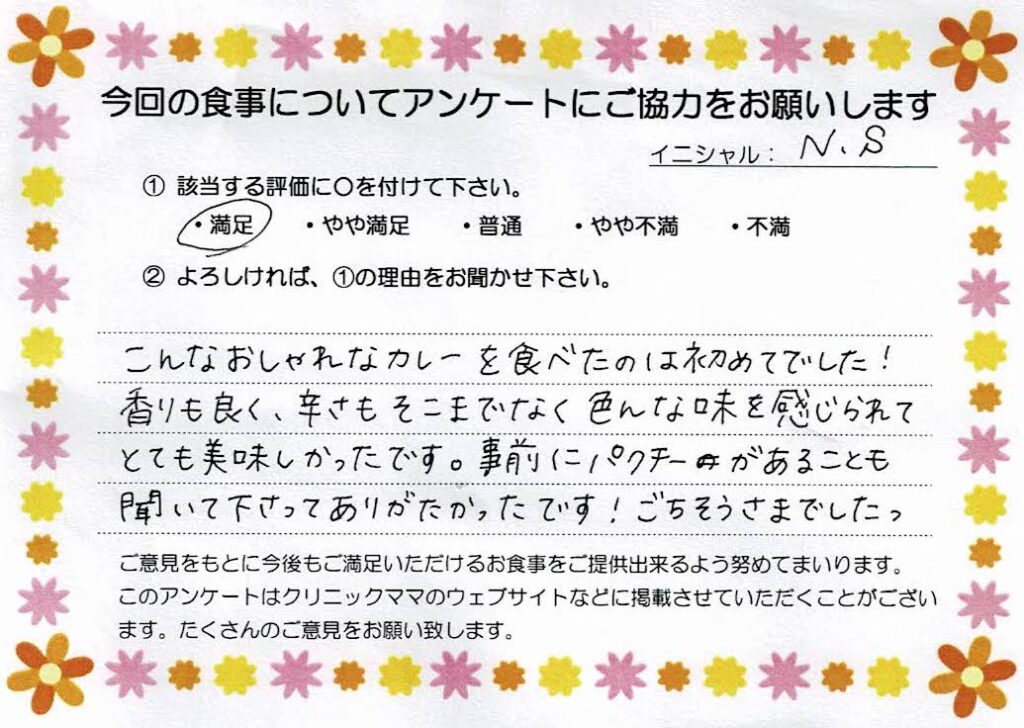 今回の食事についてアンケートにご協力をお願いします
イニシャル： N.S
① 該当する評価に〇を付けて下さい。
・満足 ・やや満足 ・普通 ・やや不満 ・不満
② よろしければ、①の理由をお聞かせ下さい。
こんなおしゃれなカレーを食べたのは初めてでした！
香りも良く、辛さもそこまでなく色んな味を感じられて
とても美味しかったです。事前にパクチーがあることも
聞いて下さってありがたかったです！ごちそうさまでしたっ
ご意見をもとに今後もご満足いただけるお食事をご提供出来るよう努めてまいります。
このアンケートはクリニックママのウェブサイトなどに掲載させていただくことがござい
ます。たくさんのご意見をお願い致します。